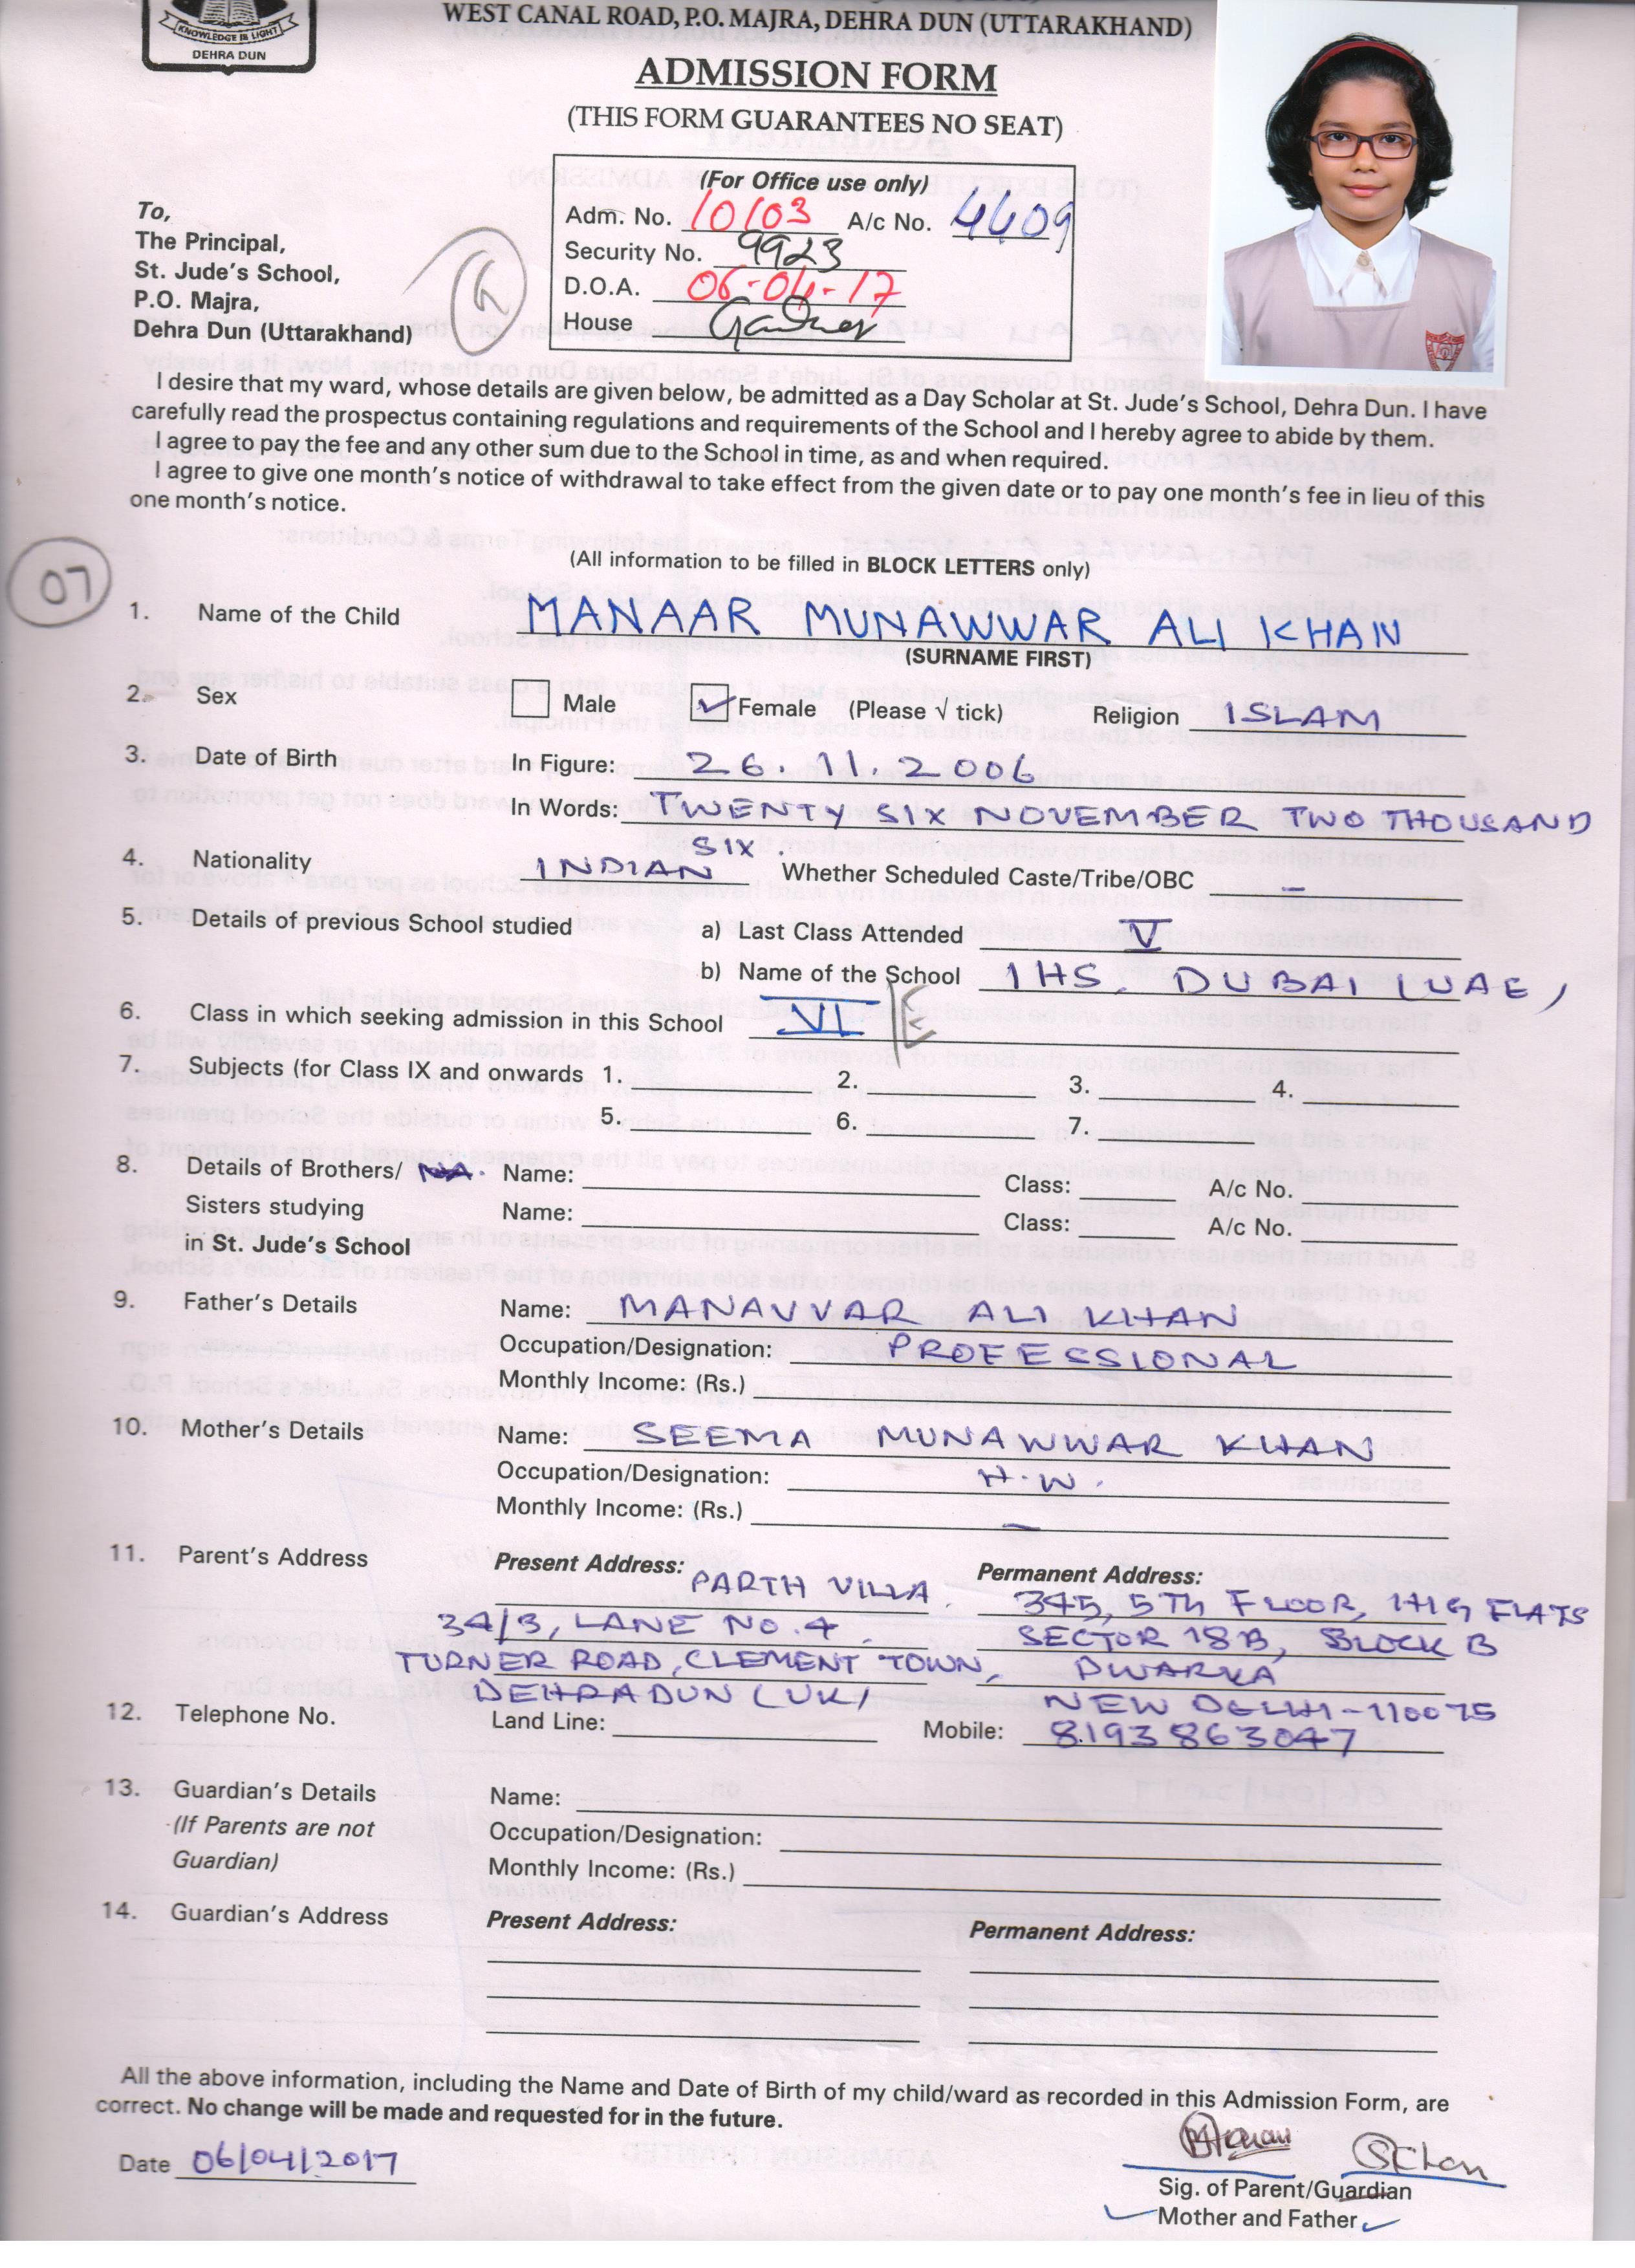 KNOWLEDGE IS LIGHT
DEHRA DUN
WEST CANAL ROAD, P.O. MAJRA, DEHRA DUN (UTTARAKHAND)
ADMISSION FORM
(THIS FORM GUARANTEES NO SEAT)
(For Office use only)
Adm. No. 10103 A/c No. 4409
Security No. 9923
D.O.A. 06-04-17
House
To,
The Principal,
St. Jude's School,
P.O. Majra,
Dehra Dun (Uttarakhand)
I desire that my ward, whose details are given below, be admitted as a Day Scholar at St. Jude's School, Dehra Dun. I have
carefully read the prospectus containing regulations and requirements of the School and I hereby agree to abide by them.
I agree to pay the fee and any other sum due to the School in time, as and when required.
I agree to give one month's notice of withdrawal to take effect from the given date or to pay one month's fee in lieu of this
one month's notice.
(All information to be filled in BLOCK LETTERS only)
07
1. Name of the Child MANAAR MUNAWWAR ALI KHAN
(SURNAME FIRST)
2. Sex Male Female (Please √ tick) Religion ISLAM
3. Date of Birth In Figure: 26.11.2006
In Words: TWENTY SIX NOVEMBER TWO THOUSAND
SIX.
4. Nationality INDIAN Whether Scheduled Caste/Tribe/OBC –
5. Details of previous School studied a) Last Class Attended V
b) Name of the School IHS, DUBAI (UAE)
6. Class in which seeking admission in this School VI E
7. Subjects (for Class IX and onwards 1. 2. 3. 4.
5. 6. 7.
8. Details of Brothers/ NA. Name: Class: A/c No.
Sisters studying Name: Class: A/c No.
in St. Jude's School
9. Father's Details Name: MANAVVAR ALI KHAN
Occupation/Designation: PROFESSIONAL
Monthly Income: (Rs.)
10. Mother's Details Name: SEEMA MUNAWWAR KHAN
Occupation/Designation: H.W.
Monthly Income: (Rs.) –
11. Parent's Address Present Address: PARTH VILLA Permanent Address:
345, 5Th FLOOR, HIG FLATS
34/3, LANE NO.4 SECTOR 18B, BLOCK B
TURNER ROAD, CLEMENT TOWN, DWARKA
DEHRADUN (UK) NEW DELHI-110075
12. Telephone No. Land Line: Mobile: 8193863047
13. Guardian's Details Name:
(If Parents are not Occupation/Designation:
Guardian) Monthly Income: (Rs.)
14. Guardian's Address Present Address: Permanent Address:
All the above information, including the Name and Date of Birth of my child/ward as recorded in this Admission Form, are
correct. No change will be made and requested for in the future.
Date 06/04/2017
SKhan
Sig. of Parent/Guardian
Mother and Father